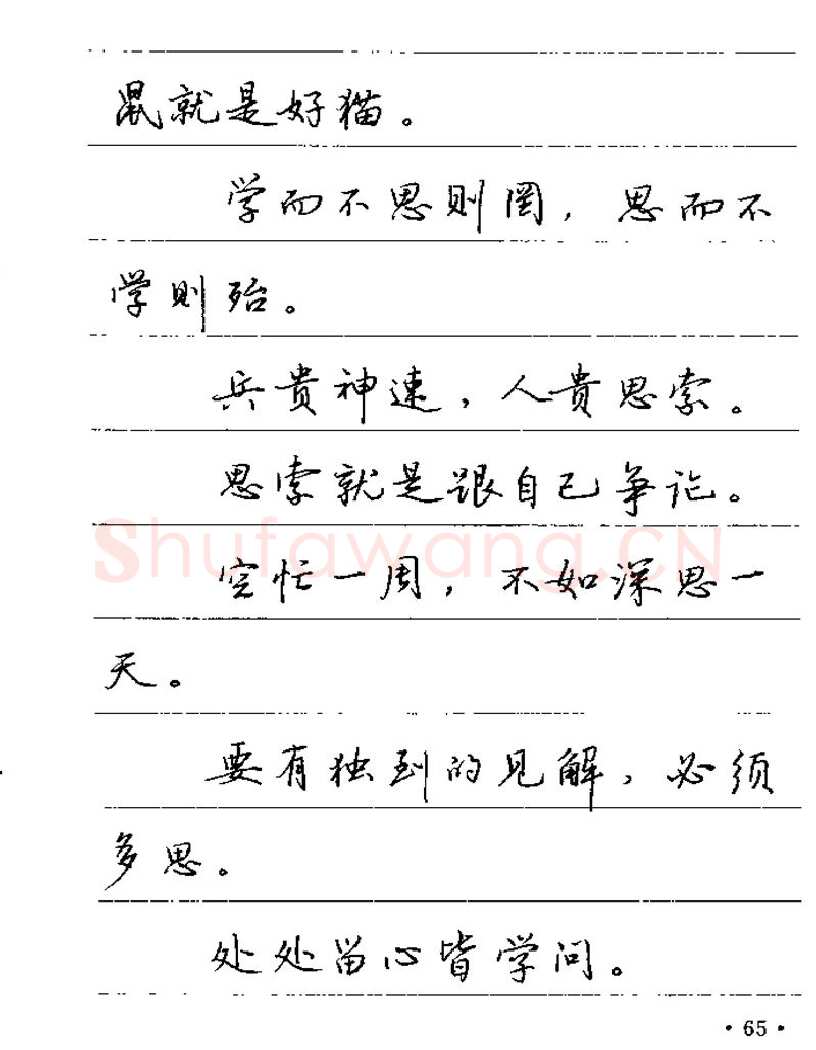 鼠就是好猫。
学而不思则罔，思而不
学则殆。
兵贵神速，人贵思索。
思索就是跟自己争论。
Shufawang.CN
空忙一周，不如深思一
天。
要有独到的见解，必须
多思。
处处留心皆学问。
·65·